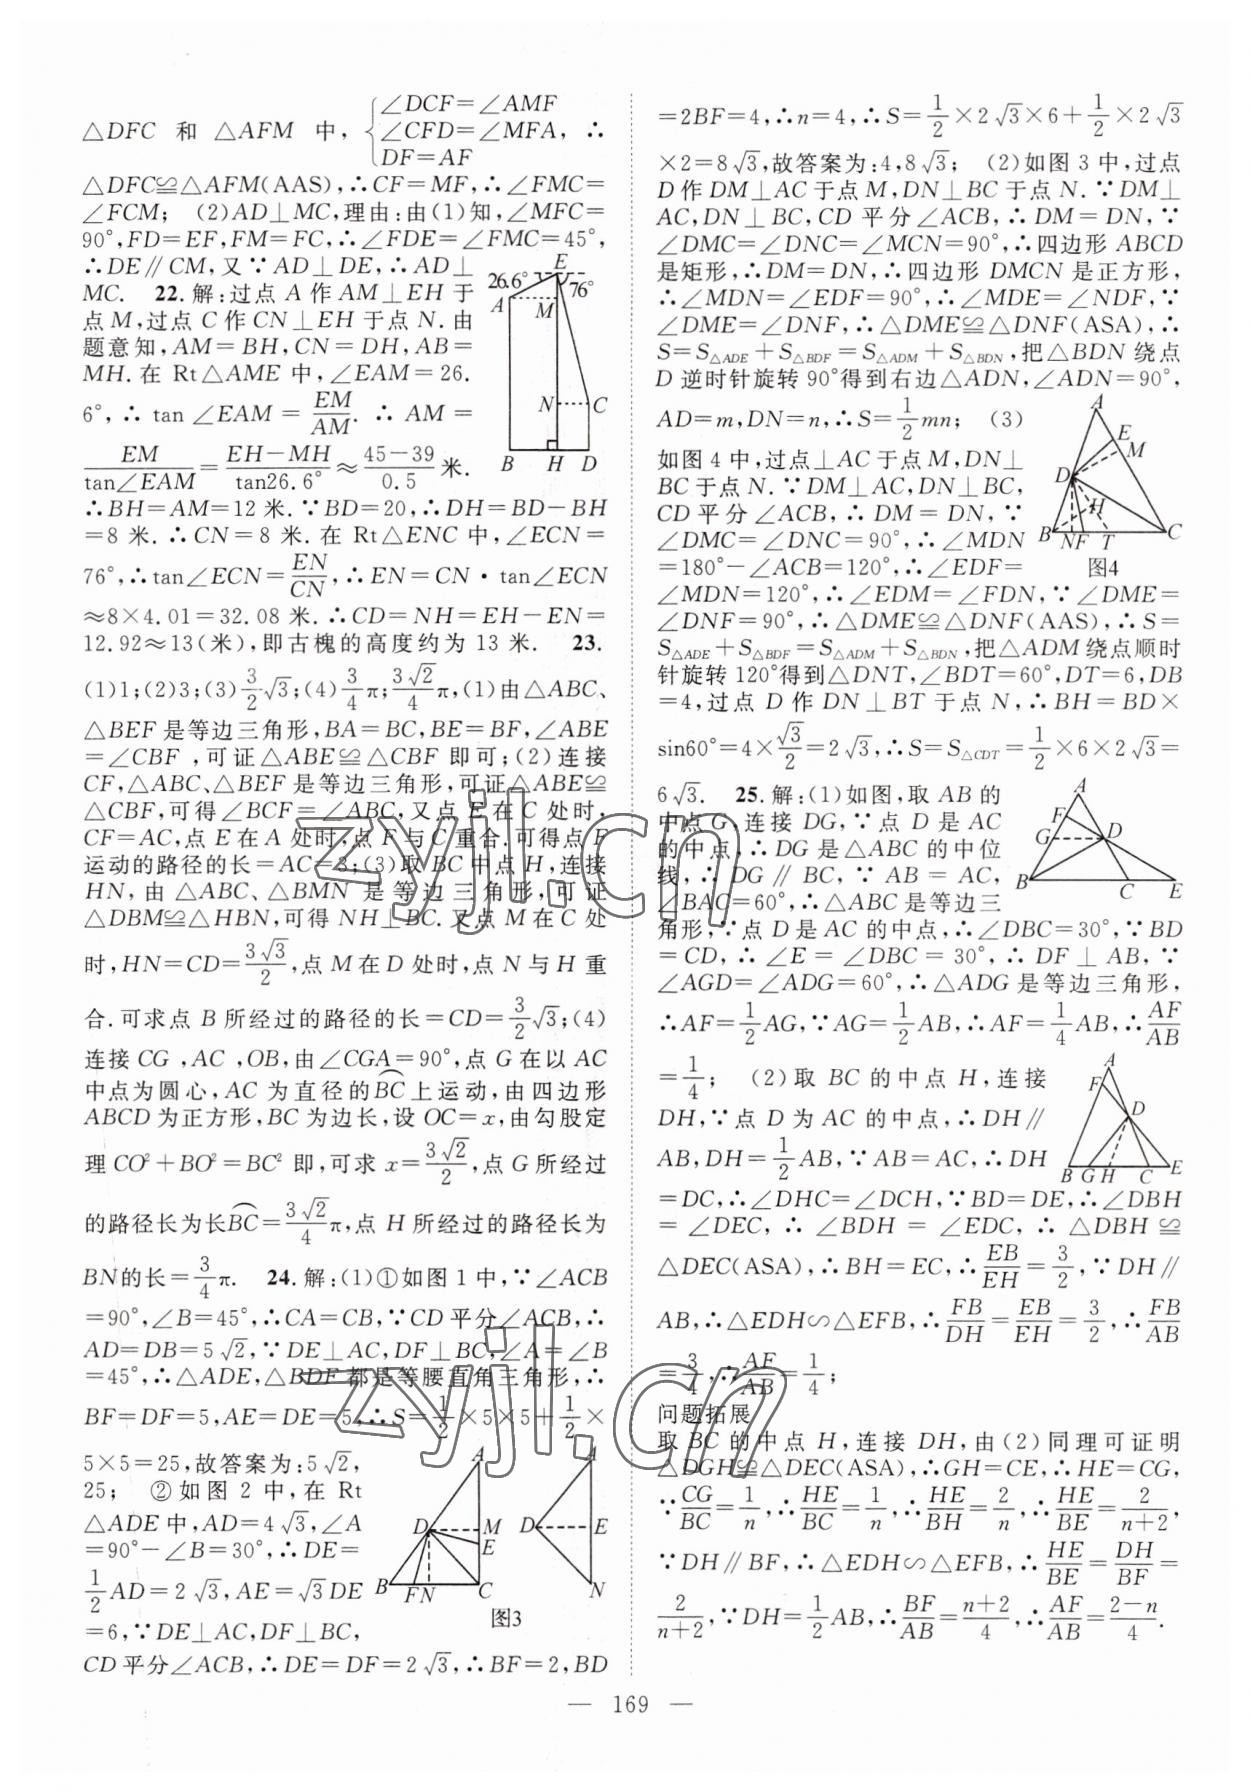 △DFC 和 △AFM 中, {∠DCF=∠AMF ∠CFD=∠MFA, DF=AF ∴
△DFC≌△AFM(AAS),∴CF=MF,∴∠FMC=
∠FCM; (2)AD⊥MC,理由:由(1)知,∠MFC=
90°,FD=EF,FM=FC,∴∠FDE=∠FMC=45°,
∴DE∥CM,又∵AD⊥DE,∴AD⊥
MC. 22.解:过点 A 作 AM⊥EH 于
点 M,过点 C 作 CN⊥EH 于点 N.由
题意知,AM=BH,CN=DH,AB=
MH.在 Rt△AME 中,∠EAM=26.
6°,∴tan∠EAM=EM/AM.∴AM=
EM/tan∠EAM=(EH-MH)/tan26.6°≈(45-39)/0.5米.
∴BH=AM=12 米.∵BD=20,∴DH=BD-BH
=8 米.∴CN=8 米.在 Rt△ENC 中,∠ECN=
76°,∴tan∠ECN=EN/CN,∴EN=CN·tan∠ECN
≈8×4.01=32.08 米.∴CD=NH=EH-EN=
12.92≈13(米),即古槐的高度约为 13 米. 23.
(1)1;(2)3;(3)3/2√3;(4)3/4π;3√2/4π,(1)由△ABC、
△BEF 是等边三角形,BA=BC,BE=BF,∠ABE
=∠CBF,可证△ABE≌△CBF 即可;(2)连接
CF,△ABC、△BEF 是等边三角形,可证△ABE≌
△CBF,可得∠BCF=∠ABC,又点 E 在 C 处时,
CF=AC,点 E 在 A 处时,点 F 与 C 重合.可得点 F
运动的路径的长=AC=3;(3)取 BC 中点 H,连接
HN,由 △ABC、△BMN 是等边三角形,可证
△DBM≌△HBN,可得 NH⊥BC.又点 M 在 C 处
时,HN=CD=3√3/2,点 M 在 D 处时,点 N 与 H 重
合.可求点 B 所经过的路径的长=CD=3/2√3;(4)
连接 CG,AC,OB,由∠CGA=90°,点 G 在以 AC
中点为圆心,AC 为直径的BC⌒上运动,由四边形
ABCD 为正方形,BC 为边长,设 OC=x,由勾股定
理 CO²+BO²=BC² 即,可求 x=3√2/2,点 G 所经过
的路径长为长BC⌒=3√2/4π,点 H 所经过的路径长为
BN⌒的长=3/4π. 24.解:(1)①如图 1 中,∵∠ACB
=90°,∠B=45°,∴CA=CB,∵CD 平分∠ACB,∴
AD=DB=5√2,∵DE⊥AC,DF⊥BC,∠A=∠B
=45°,∴△ADE,△BDF 都是等腰直角三角形,∴
BF=DF=5,AE=DE=5,∴S=1/2×5×5+1/2×
5×5=25,故答案为:5√2,
25; ②如图 2 中,在 Rt
△ADE 中,AD=4√3,∠A
=90°-∠B=30°,∴DE=
1/2AD=2√3,AE=√3DE
=6,∵DE⊥AC,DF⊥BC,
CD 平分∠ACB,∴DE=DF=2√3,∴BF=2,BD
26.6° E 76° A M N C B H D
A D M E B F N C A D E N
图3
=2BF=4,∴n=4,∴S=1/2×2√3×6+1/2×2√3
×2=8√3,故答案为:4,8√3; (2)如图 3 中,过点
D 作 DM⊥AC 于点 M,DN⊥BC 于点 N.∵DM⊥
AC,DN⊥BC,CD 平分∠ACB,∴DM=DN,∵
∠DMC=∠DNC=∠MCN=90°,∴四边形 ABCD
是矩形,∴DM=DN,∴四边形 DMCN 是正方形,
∴∠MDN=∠EDF=90°,∴∠MDE=∠NDF,∵
∠DME=∠DNF,∴△DME≌△DNF(ASA),∴
S=S△ADE+S△BDF=S△ADM+S△BDN,把△BDN 绕点
D 逆时针旋转 90°得到右边△ADN,∠ADN=90°,
AD=m,DN=n,∴S=1/2mn; (3)
如图 4 中,过点⊥AC 于点 M,DN⊥
BC 于点 N.∵DM⊥AC,DN⊥BC,
CD 平分∠ACB,∴DM=DN,∵
∠DMC=∠DNC=90°,∴∠MDN
=180°-∠ACB=120°,∴∠EDF=
∠MDN=120°,∴∠EDM=∠FDN,∵∠DME=
∠DNF=90°,∴△DME≌△DNF(AAS),∴S=
S△ADE+S△BDF=S△ADM+S△BDN,把△ADM 绕点顺时
针旋转 120°得到△DNT,∠BDT=60°,DT=6,DB
=4,过点 D 作 DN⊥BT 于点 N,∴BH=BD×
sin60°=4×√3/2=2√3,∴S=S△CDT=1/2×6×2√3=
6√3. 25.解:(1)如图,取 AB 的
中点 G,连接 DG,∵点 D 是 AC
的中点,∴DG 是△ABC 的中位
线,∴DG∥BC,∵AB=AC,
∠BAC=60°,∴△ABC 是等边三
角形,∵点 D 是 AC 的中点,∴∠DBC=30°,∵BD
=CD,∴∠E=∠DBC=30°,∴DF⊥AB,∵
∠AGD=∠ADG=60°,∴△ADG 是等边三角形,
∴AF=1/2AG,∵AG=1/2AB,∴AF=1/4AB,∴AF/AB
=1/4; (2)取 BC 的中点 H,连接
DH,∵点 D 为 AC 的中点,∴DH∥
AB,DH=1/2AB,∵AB=AC,∴DH
=DC,∴∠DHC=∠DCH,∵BD=DE,∴∠DBH
=∠DEC,∴∠BDH=∠EDC,∴△DBH≌
△DEC(ASA),∴BH=EC,∴EB/EH=3/2,∵DH∥
AB,∴△EDH∽△EFB,∴FB/DH=EB/EH=3/2,∴FB/AB
=3/4,∴AF/AB=1/4;
问题拓展
取 BC 的中点 H,连接 DH,由(2)同理可证明
△DGH≌△DEC(ASA),∴GH=CE,∴HE=CG,
∵CG/BC=1/n,∴HE/BC=1/n,∴HE/BH=2/n,∴HE/BE=2/(n+2),
∵DH∥BF,∴△EDH∽△EFB,∴HE/BE=DH/BF=
2/(n+2),∵DH=1/2AB,∴BF/AB=(n+2)/4,∴AF/AB=(2-n)/4.
A E M D H B N F T C
图4
A F G D B C E
A F D B G H C E
zyjl.cn
zyjl.cn
— 169 —